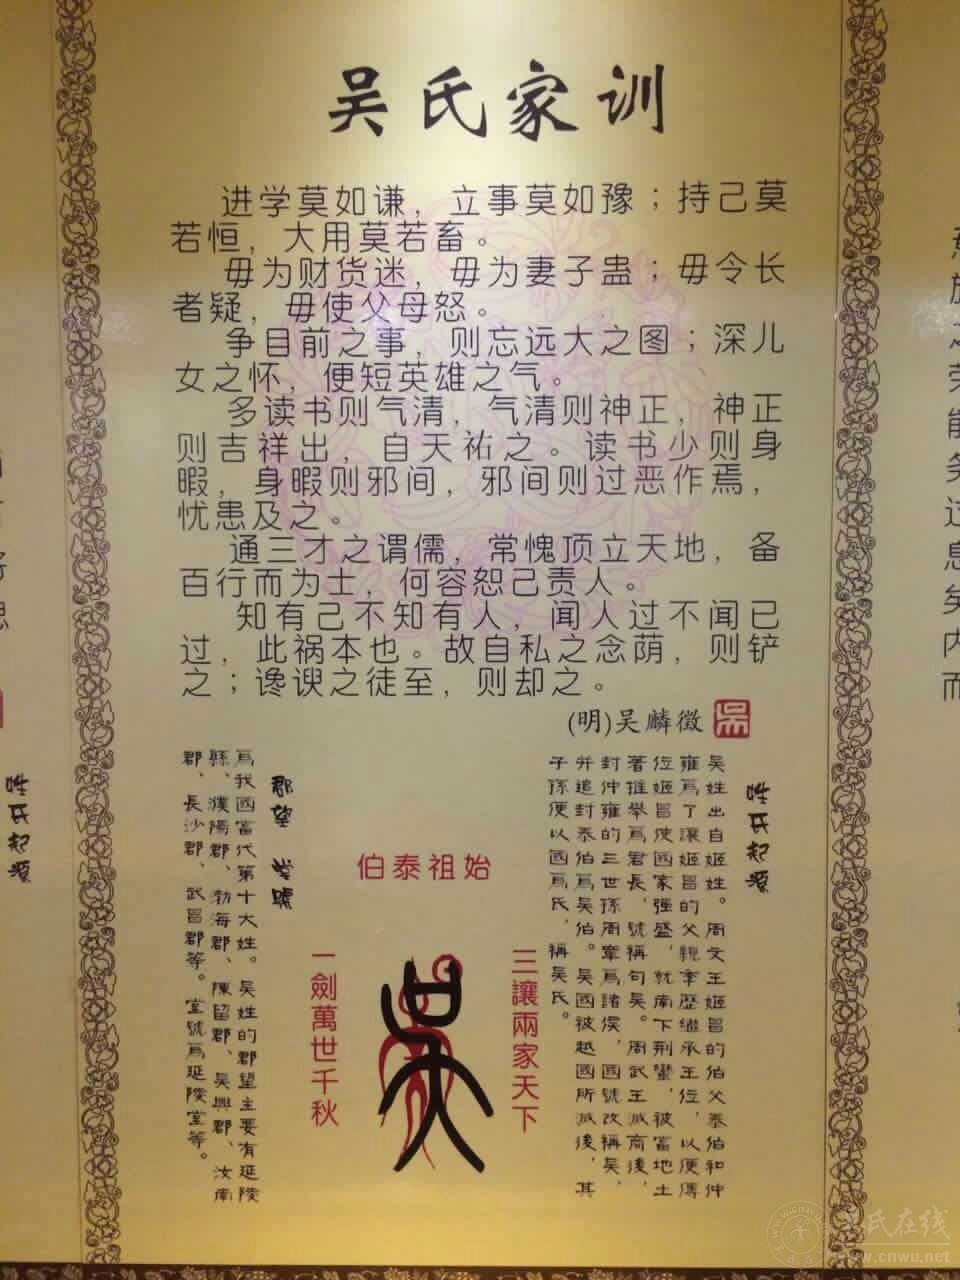 吴氏家训
进学莫如谦，立事莫如豫；持己莫
若恒，大用莫若畜。
毋为财货迷，毋为妻子蛊；毋令长
者疑，毋使父母怒。
争目前之事，则忘远大之图；深儿
女之怀，便短英雄之气。
多读书则气清，气清则神正，神正
则吉祥出，自天祐之。读书少则身
暇，身暇则邪间，邪间则过恶作焉，
忧患及之。
通三才之谓儒，常愧顶立天地，备
百行而为士，何容恕己责人。
知有己不知有人，闻人过不闻已
过，此祸本也。故自私之念荫，则铲
之；谗谀之徒至，则却之。
(明)吴麟徵
姓氏起源
吴姓出自姬姓。周文王姬昌的伯父泰伯和仲
雍爲了讓姬昌的父親季歷繼承王位，以便傳
位姬昌使國家强盛，就南下荆蠻，被當地土
著推舉爲君長，號稱句吴。周武王滅商後，
封仲雍的三世孫周章爲諸侯，國號改稱吴，
并追封泰伯爲吴伯。吴國被越國所滅後，其
子孫便以國爲氏，稱吴氏。
伯泰祖始
三讓兩家天下
吴
一劍萬世千秋
郡望 堂號
爲我國當代第十大姓。吴姓的郡望主要有延陵
縣、濮陽郡、渤海郡、陳留郡、吴興郡、汝南
郡、長沙郡、武昌郡等。堂號爲延陵堂等。
姓氏起源
氏在线
www.cnwu.net